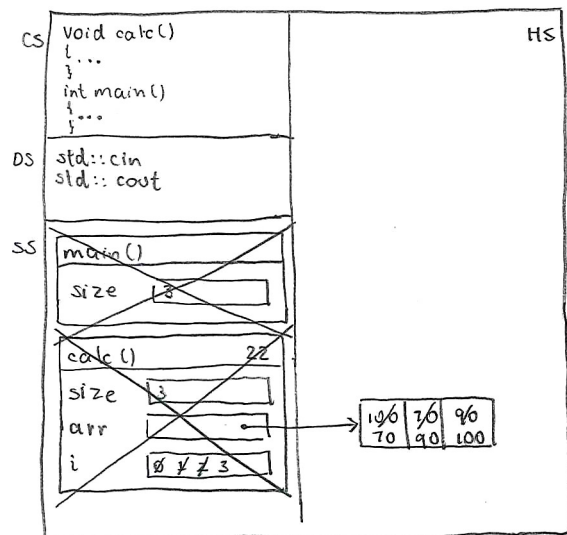 CS
void calc()
{...
}
int main()
{...
}
HS
DS
std::cin
std::cout
SS
main()
size 3
calc() 22
size 3
arr
i 0 1 2 3
100 70 90
70 90 100